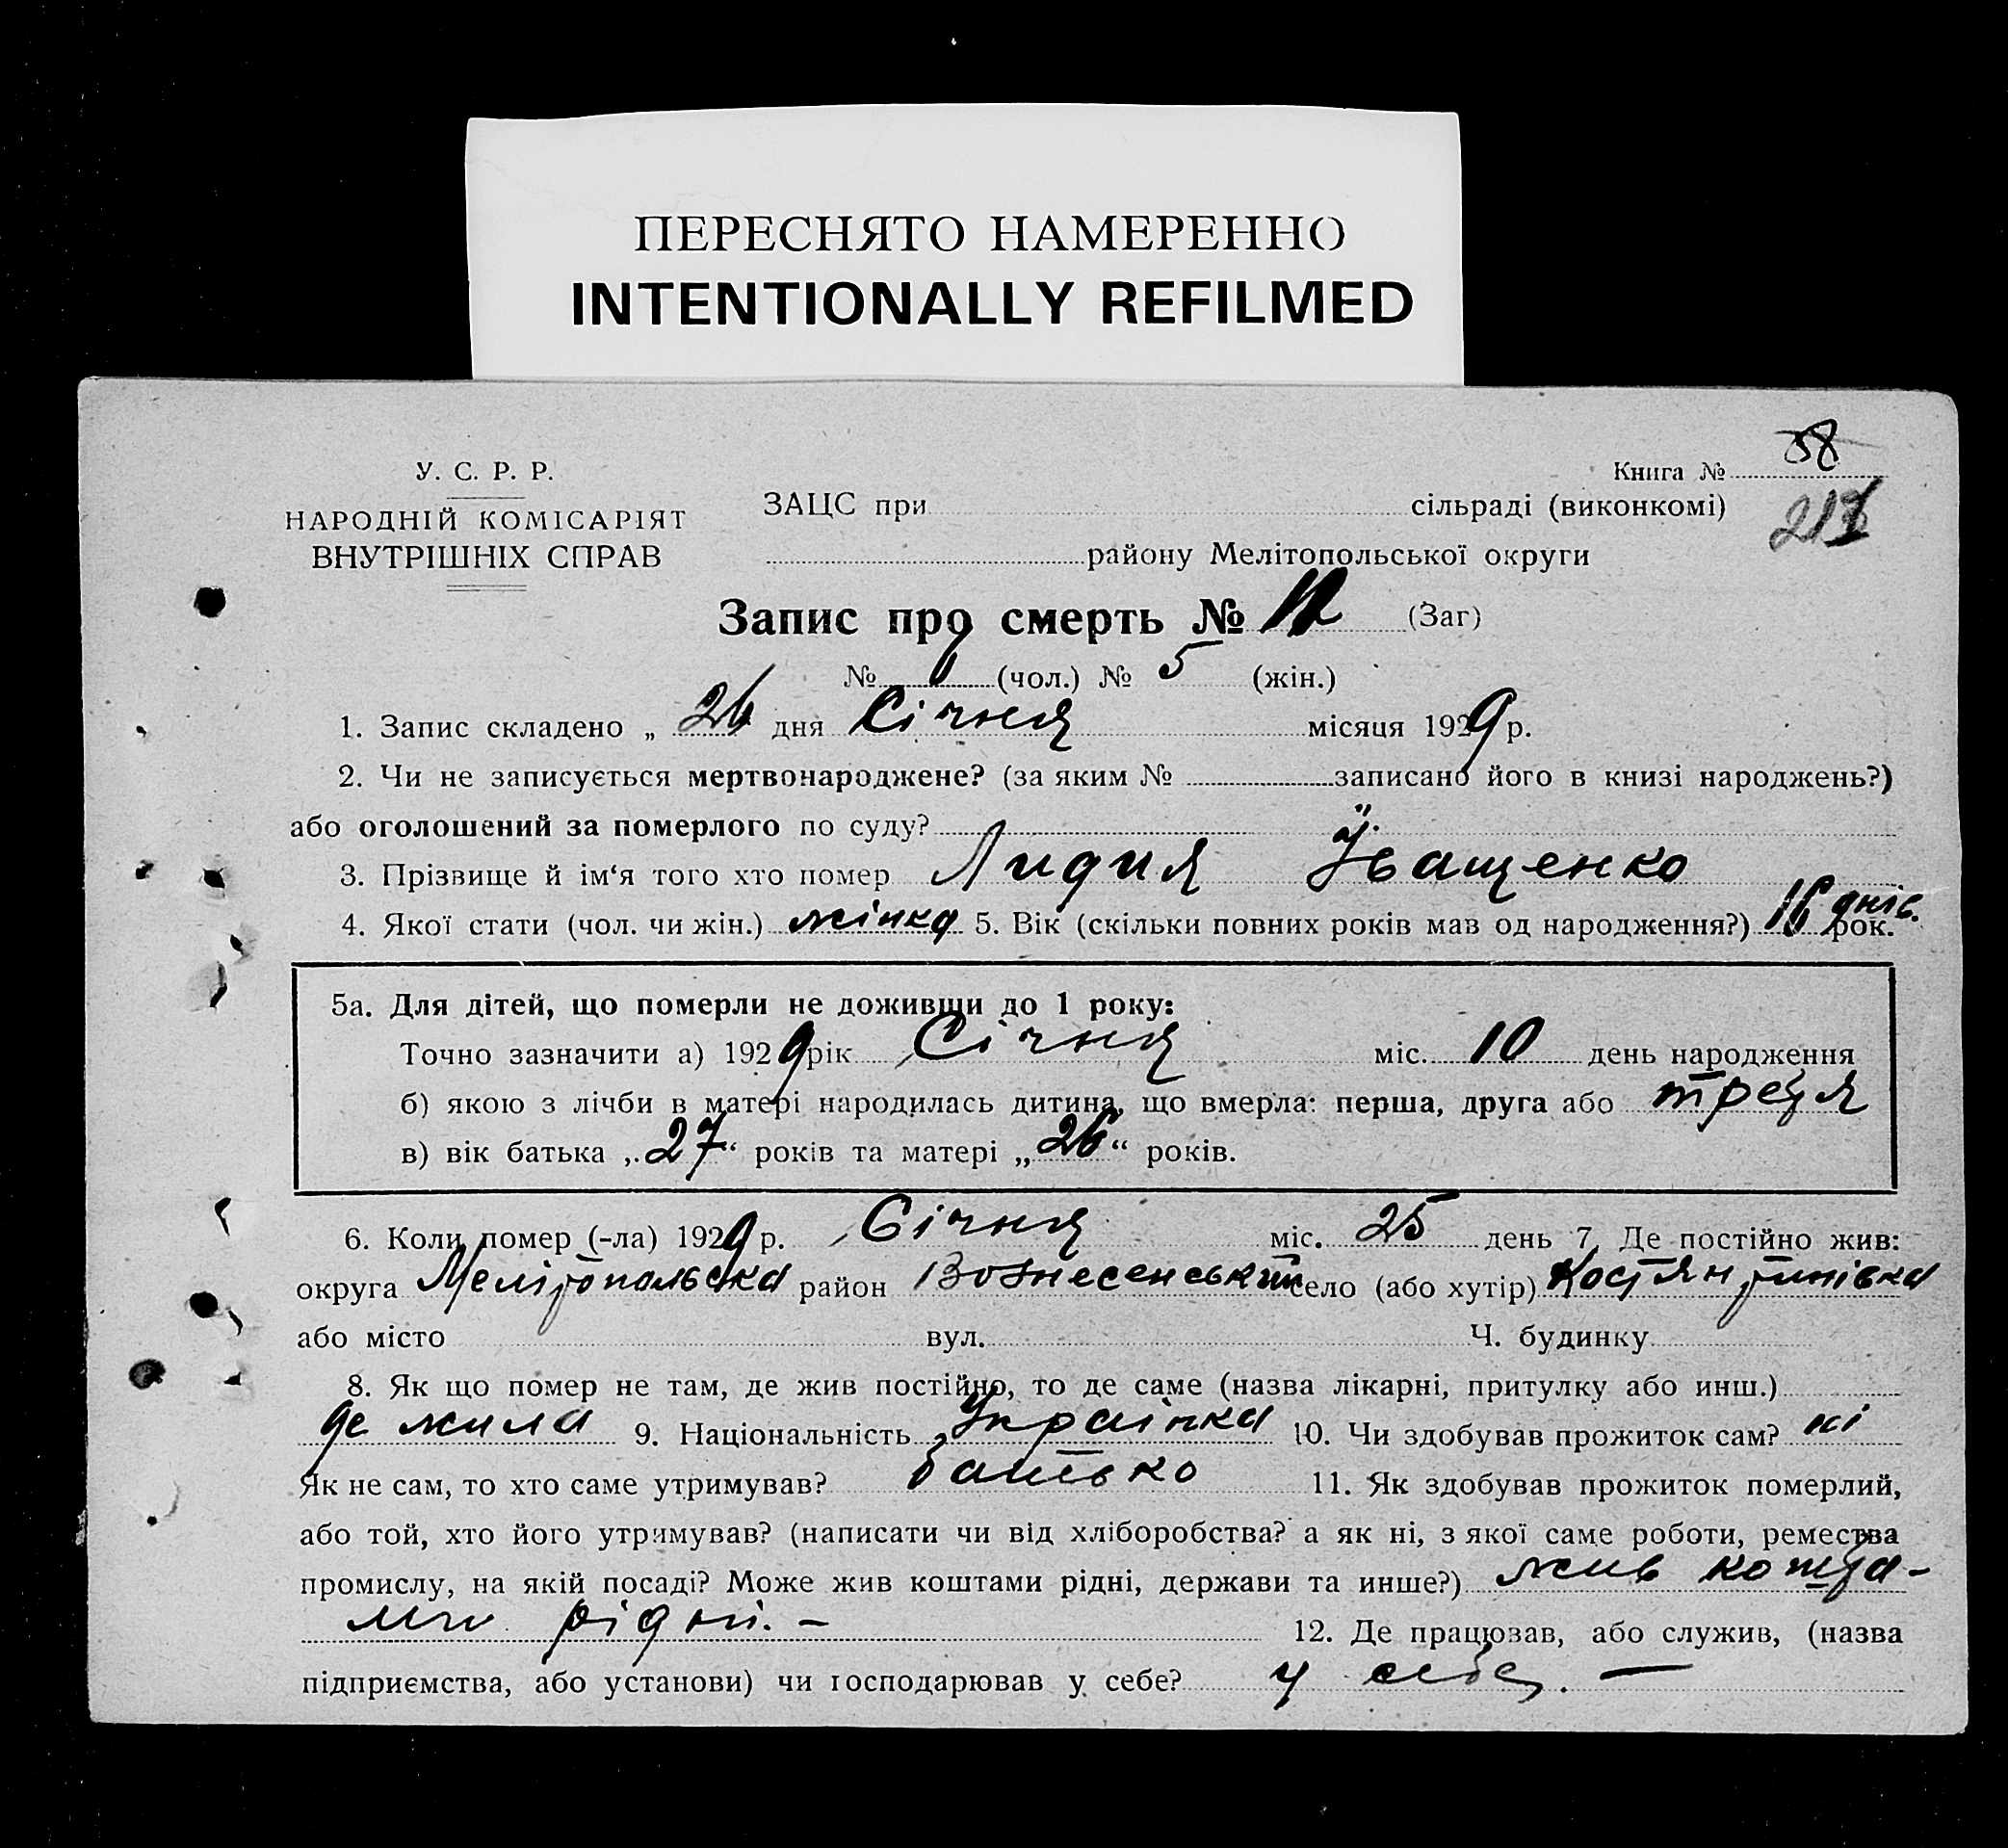 ПЕРЕСНЯТО НАМЕРЕННО
INTENTIONALLY REFILMED
У. С. Р. Р.
НАРОДНІЙ КОМІСАРІЯТ
ВНУТРІШНІХ СПРАВ
Книга № 58
ЗАЦС при сільраді (виконкомі)
району Мелітопольської округи
Запис про смерть № 12 (Заг)
№ (чол.) № 5 (жін.)
1. Запис складено „ 26 дня Січня місяця 1929 р.
2. Чи не записується мертвонароджене? (за яким № записано його в книзі народжень?)
або оголошений за померлого по суду?
3. Прізвище й ім‘я того хто помер Лидия Іващенко
4. Якої стати (чол. чи жін.) жінка 5. Вік (скільки повних років мав од народження?) 16 днів. рок.
5а. Для дітей, що померли не доживши до 1 року:
Точно зазначити а) 1929 рік Січня міс. 10 день народження
б) якою з лічби в матері народилась дитина, що вмерла: перша, друга або третя
в) вік батька „27“ років та матері „26“ років.
6. Коли помер (-ла) 1929 р. Січня міс. 25 день 7. Де постійно жив:
округа Мелітопольска район Вознесенський село (або хутір) Костянтинівка
або місто вул. Ч. будинку
8. Як що помер не там, де жив постійно, то де саме (назва лікарні, притулку або инш.)
де жила 9. Національність Українка 10. Чи здобував прожиток сам? ні
Як не сам, то хто саме утримував? батько 11. Як здобував прожиток померлий,
або той, хто його утримував? (написати чи від хліборобства? а як ні, з якої саме роботи, ремества
промислу, на якій посаді? Може жив коштами рідні, держави та инше?) жив кошта-
ми рідні. –
12. Де працював, або служив, (назва
підприємства, або установи) чи господарював у себе? у себе. —